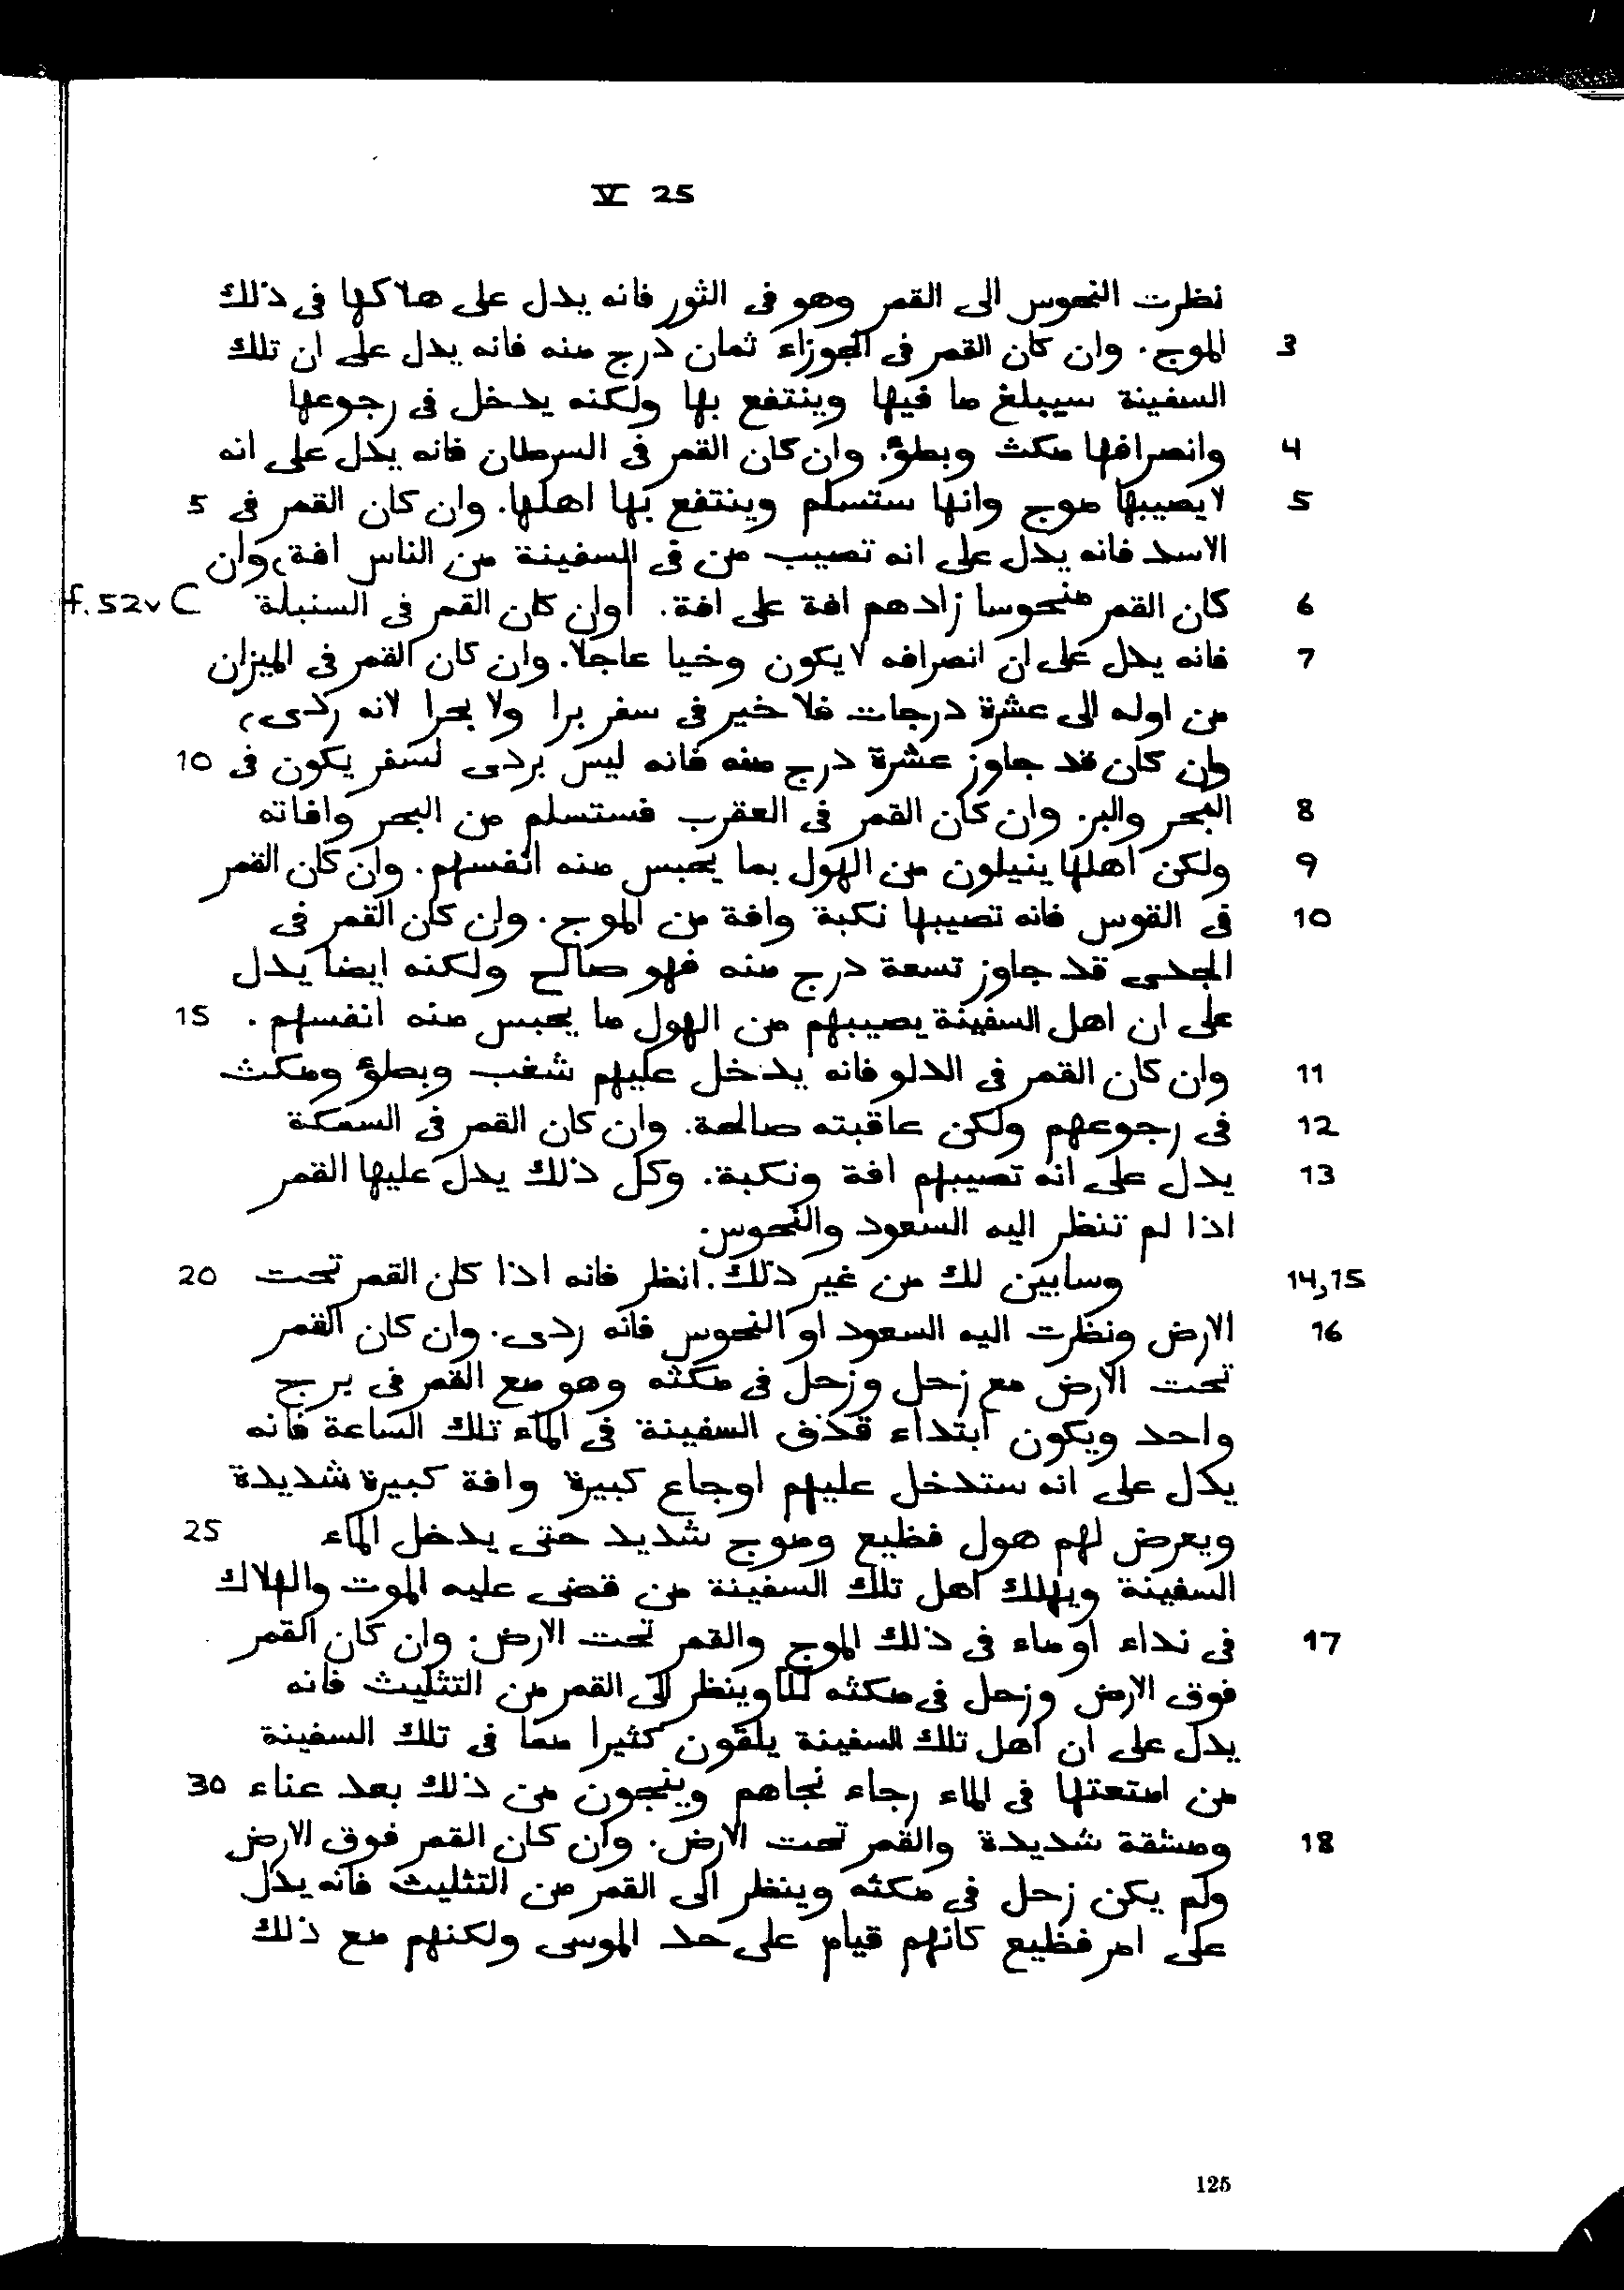 V 25
نظرت النحوس الى القمر وهو فى الثور فانه يدل على هلاكها فى ذلك
3 الموج. وان كان القمر فى الجوزاء ثمان درج منه فانه يدل على ان تلك
السفينة سيبلغ ما فيها وينتفع بها ولكنه يدخل فى رجوعها
4 وانصرافها مكث وبطؤ. وان كان القمر فى السرطان فانه يدل على انه
5 لا يصيبها موج وانها ستسلم وينتفع بها اهلها. وان كان القمر فى 5
الاسد فانه يدل على انه تصيب من فى السفينة من الناس افة، وان
6 كان القمر منحوسا زادهم افة على افة. | وان كان القمر فى السنبلة f. 52v C
7 فانه يدل على ان انصرافه لا يكون وخيا عاجلا. وان كان القمر فى الميزان
من اوله الى عشرة درجات فلا خير فى سفر برا ولا بحرا لانه ردى،
وان كان قد جاوز عشرة درج منه فانه ليس بردى لسفر يكون فى 10
8 البحر والبر. وان كان القمر فى العقرب فستسلم من البحر وافاته
9 ولكن اهلها ينيلون من الهول بما يحبس منه انفسهم. وان كان القمر
10 فى القوس فانه تصيبها نكبة وافة من الموج. وان كان القمر فى
الجدى قد جاوز تسعة درج منه فهو صالح ولكنه ايضا يدل
على ان اهل السفينة يصيبهم من الهول ما يحبس منه انفسهم. 15
11 وان كان القمر فى الدلو فانه يدخل عليهم شغب وبطؤ ومكث
12 فى رجوعهم ولكن عاقبته صالحة. وان كان القمر فى السمكة
13 يدل على انه تصيبهم افة ونكبة. وكل ذلك يدل عليها القمر
اذا لم تنظر اليه السعود والنحوس.
14,15 وسابين لك من غير ذلك. انظر فانه اذا كان القمر تحت 20
16 الارض ونظرت اليه السعود او النحوس فانه ردى. وان كان القمر
تحت الارض مع زحل وزحل فى مكثه وهو مع القمر فى برج
واحد ويكون ابتداء قذف السفينة فى الماء تلك الساعة فانه
يدل على انه ستدخل عليهم اوجاع كبيرة وافة كبيرة شديدة
ويعرض لهم هول فظيع وموج شديد حتى يدخل الماء 25
السفينة ويهلك اهل تلك السفينة من قضى عليه الموت والهلاك
17 فى نداء او ماء فى ذلك الموج والقمر تحت الارض. وان كان القمر
فوق الارض وزحل فى مكثه وينظر الى القمر من التثليث فانه
يدل على ان اهل تلك السفينة يلقون كثيرا مما فى تلك السفينة
من امتعتها فى الماء رجاء نجاهم وينجون من ذلك بعد عناء 30
18 ومشقة شديدة والقمر تحت الارض. وان كان القمر فوق الارض
ولم يكن زحل فى مكثه وينظر الى القمر من التثليث فانه يدل
على امر فظيع كانهم قيام على حد الموسى ولكنهم مع ذلك
125